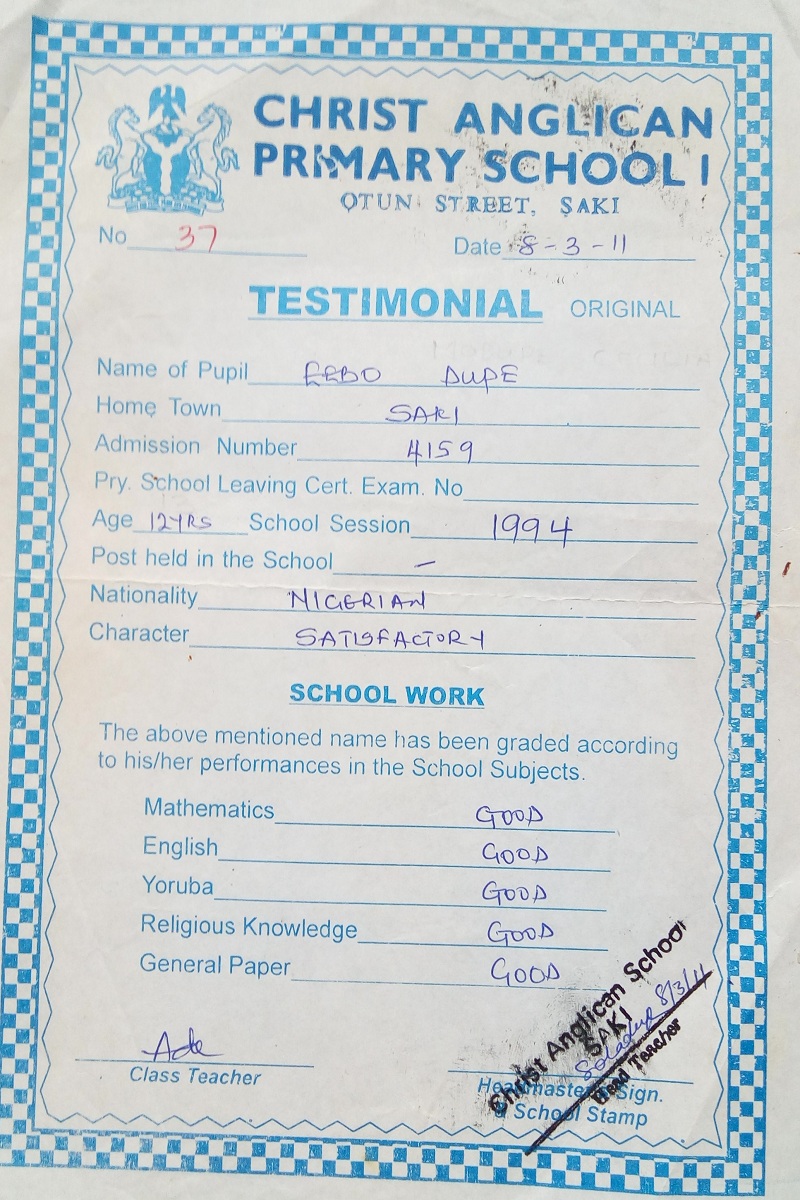 CHRIST ANGLICAN
PRIMARY SCHOOL I
OTUN STREET, SAKI
No 37
Date 8-3-11
TESTIMONIAL ORIGINAL
Name of Pupil EEBO DUPE
Home Town SAKI
Admission Number 4159
Pry. School Leaving Cert. Exam. No
Age 12YRS School Session 1994
Post held in the School –
Nationality NIGERIAN
Character SATISFACTORY
SCHOOL WORK
The above mentioned name has been graded according
to his/her performances in the School Subjects.
Mathematics GOOD
English GOOD
Yoruba GOOD
Religious Knowledge GOOD
General Paper GOOD
Christ Anglican School
SAKI
8/3/11
Head Teacher
Ade
Class Teacher
Headmaster's Sign.
& School Stamp